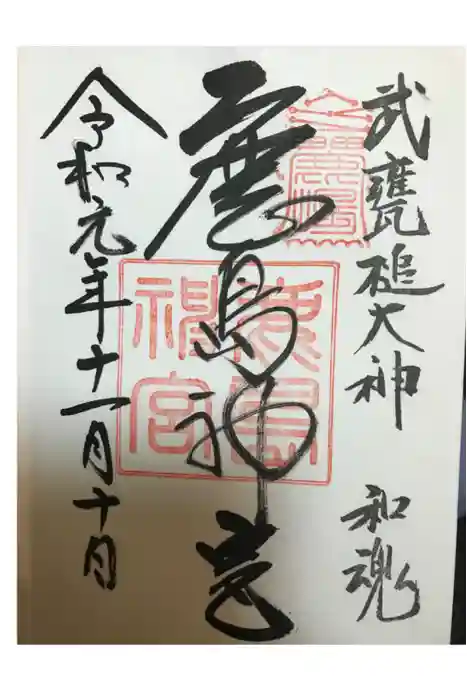 武甕槌大神 和魂
鹿島神宮
鹿島
神宮
令和元年十一月十日